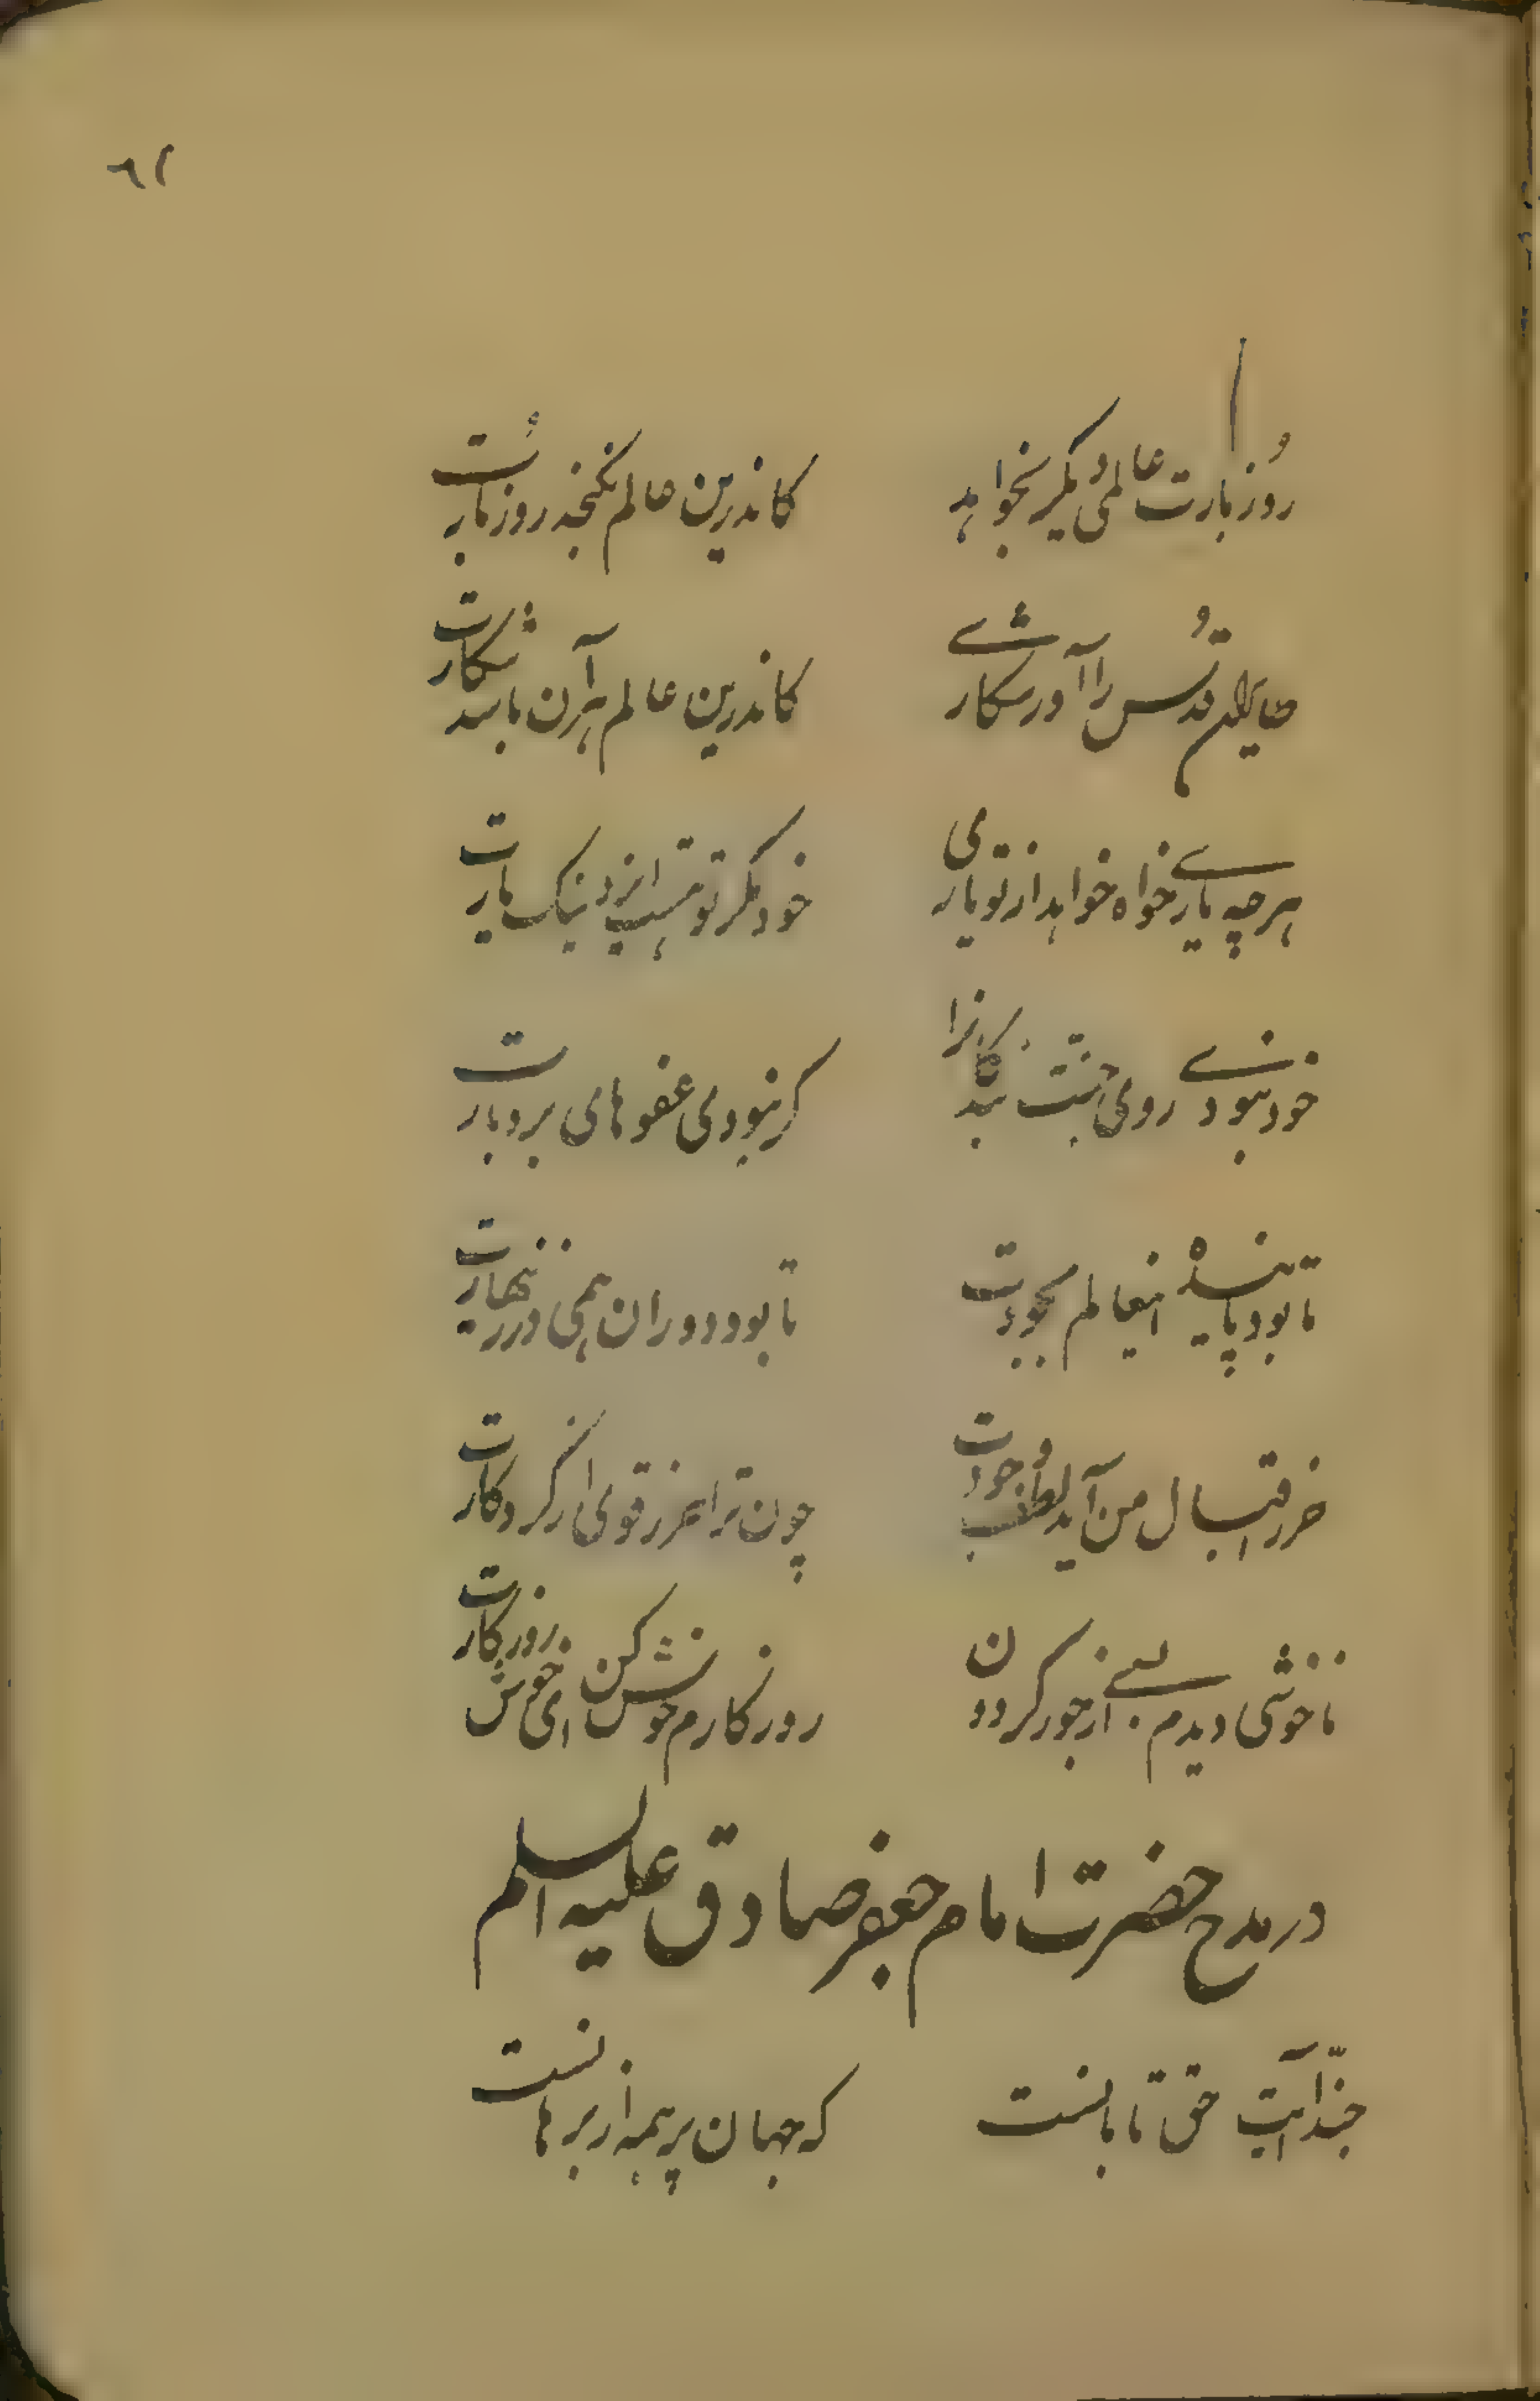 ٦٢
روز بارت عالمی دیگر بخواهد کاندرین عالم نگنجد روز بارت
طایر قدس را آور شکار کاندرین عالم هر آن باشد شکارت
هرچه یاری خواه خواهد از تو یاری خود مگر تو هست ایزد نیک یارت
خود نبودی روی جنت بندگانرا گر نبودی عفوهای بردبارت
تا بود پاینده اینعالم بجودت تا بود دوران همی در زینهارت
من آید لطف وجودت چون ترا عز قوی از کردکارت
ناخوشی دیدم بسی از جور گردون روزگارم خوش کن ای خوش روزگارت
در مدح حضرت امام جعفر صادق علیه السلم
حبّذا آیت حق تابانست که جهان پر همه از برهانست